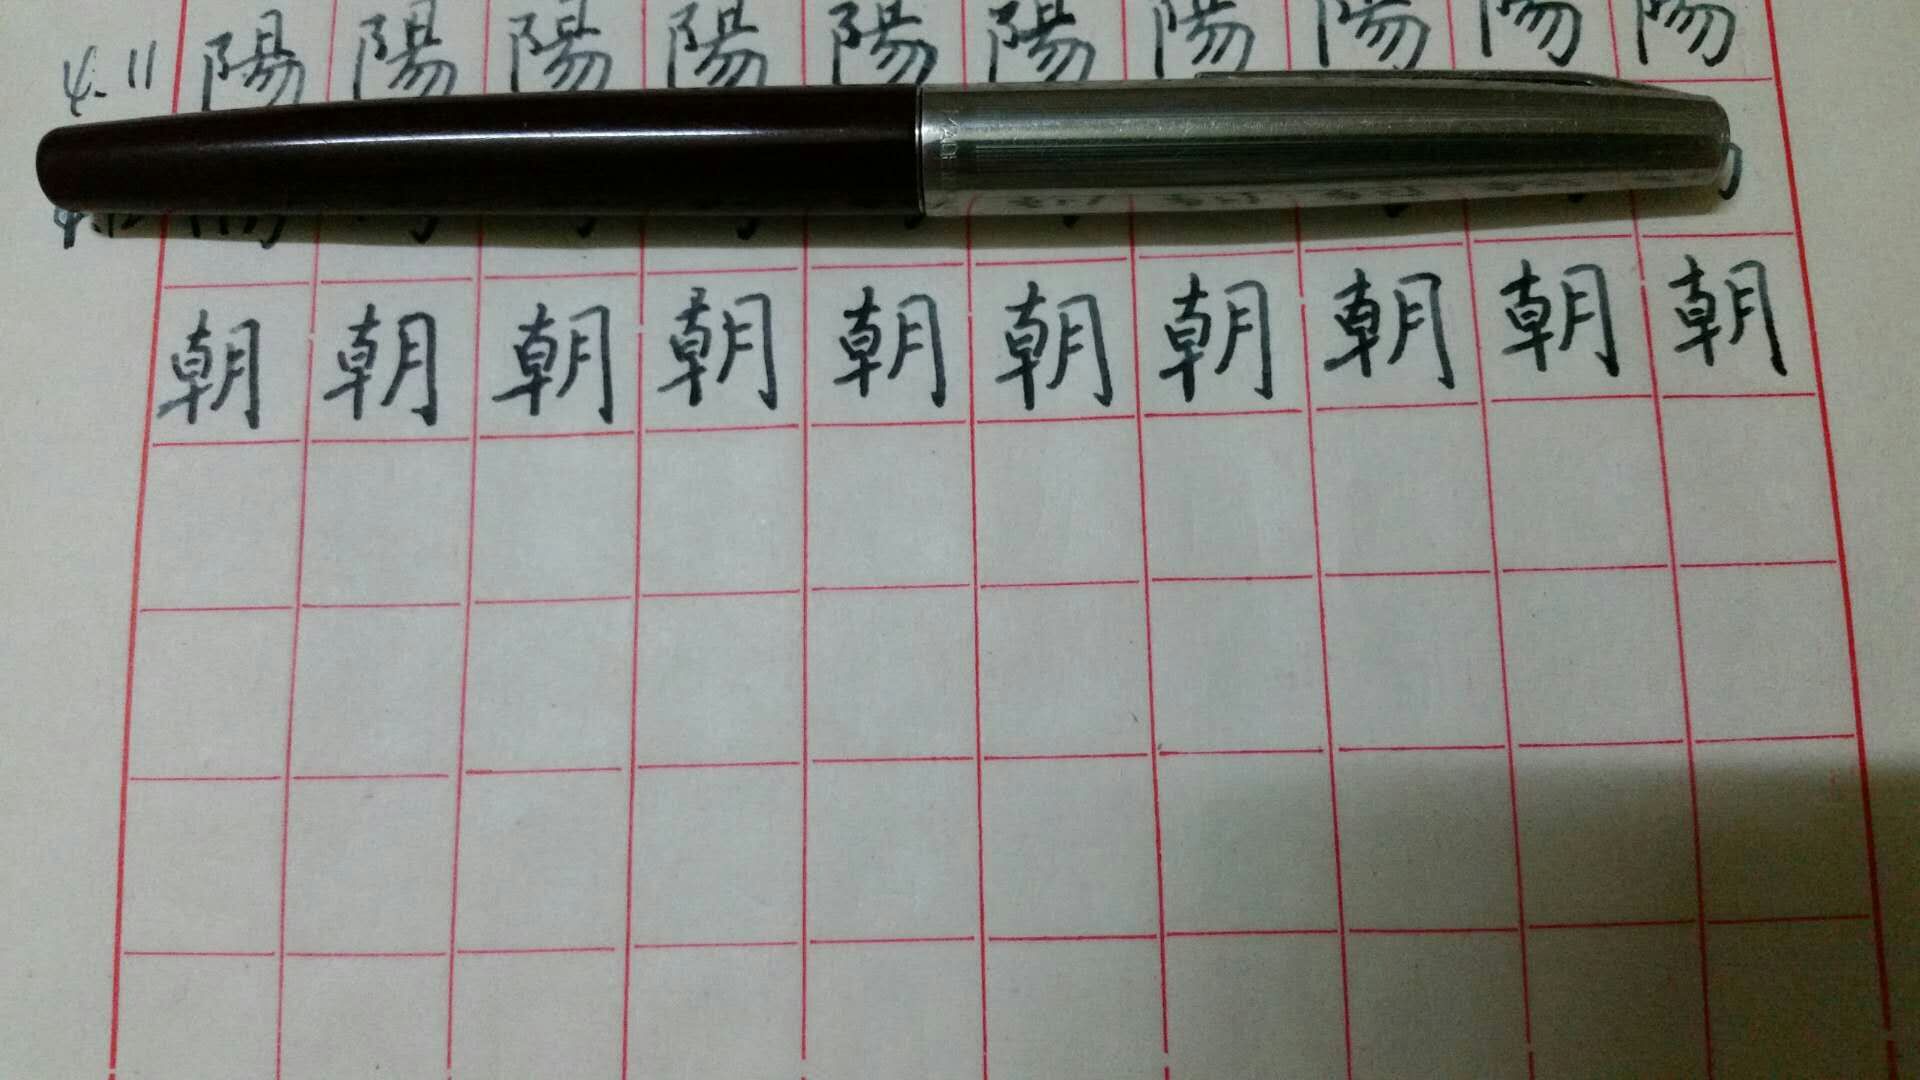 4.11 陽 陽 陽 陽 陽 陽 陽 陽 陽 陽
朝 朝 朝 朝 朝 朝 朝 朝 朝 朝